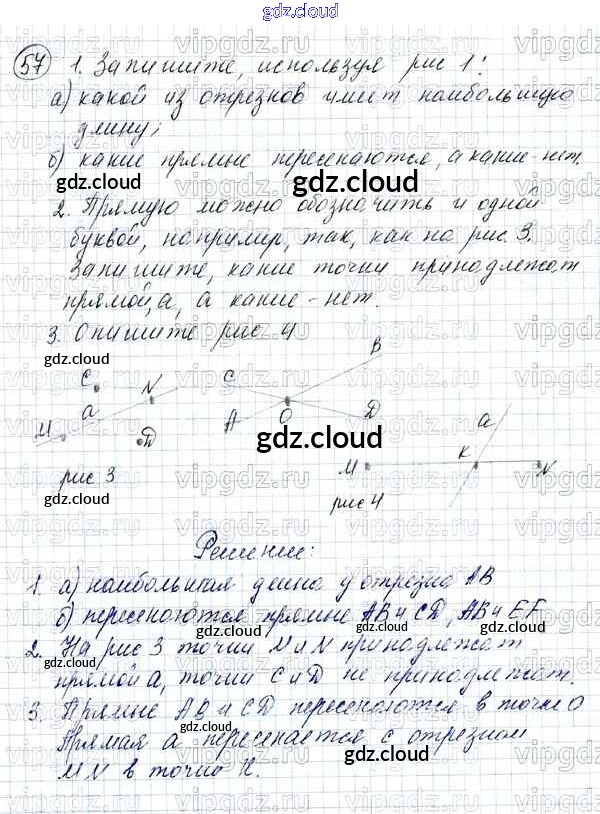 gdz.cloud
57 1. Запишите, используя рис 1:
а) какой из отрезков имеет наибольшую
длину;
б) какие прямые пересекаются, а какие - нет.
gdz.cloud
2. Прямую можно обозначить и одной
буквой, например, так, как на рис. 3.
Запишите, какие точки принадлежат
прямой а, а какие - нет.
3. Опишите рис 4
gdz.cloud gdz.cloud
C N a M D
рис 3
C B A O D
a M K N
рис 4
gdz.cloud
gdz.cloud
gdz.cloud
gdz.cloud
Решение:
1. а) наибольшая длина у отрезка АВ
б) пересекаются прямые АВ и CD, АВ и EF
gdz.cloud
2. На рис 3 точки M и N принадлежат
прямой а, точки С и D не принадлежат.
gdz.cloud
3. Прямые АВ и CD пересекаются в точке О
Прямая а пересекается с отрезком
gdz.cloud
MN в точке К.
gdz.cloud